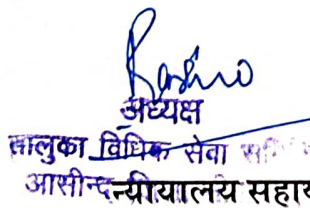 अध्यक्ष
तालुका विधिक सेवा
आसीन्द न्यायालय